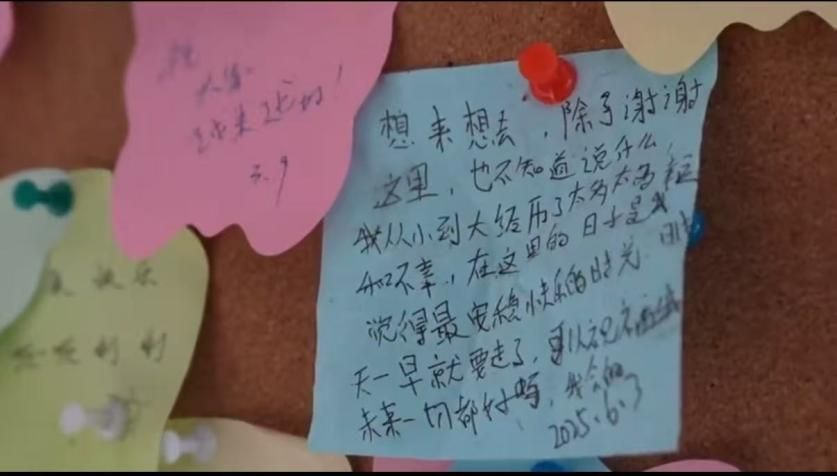 大家
越来越好！
3.9
快乐
顺顺利利
想来想去，除了谢谢
这里，也不知道说什么，
我从小到大经历了太多太多
和不幸，在这里的日子是我
觉得最安稳快乐的时光。明
天一早就要走了，可以祝
未来一切都好吗，我会的
2025.6.3